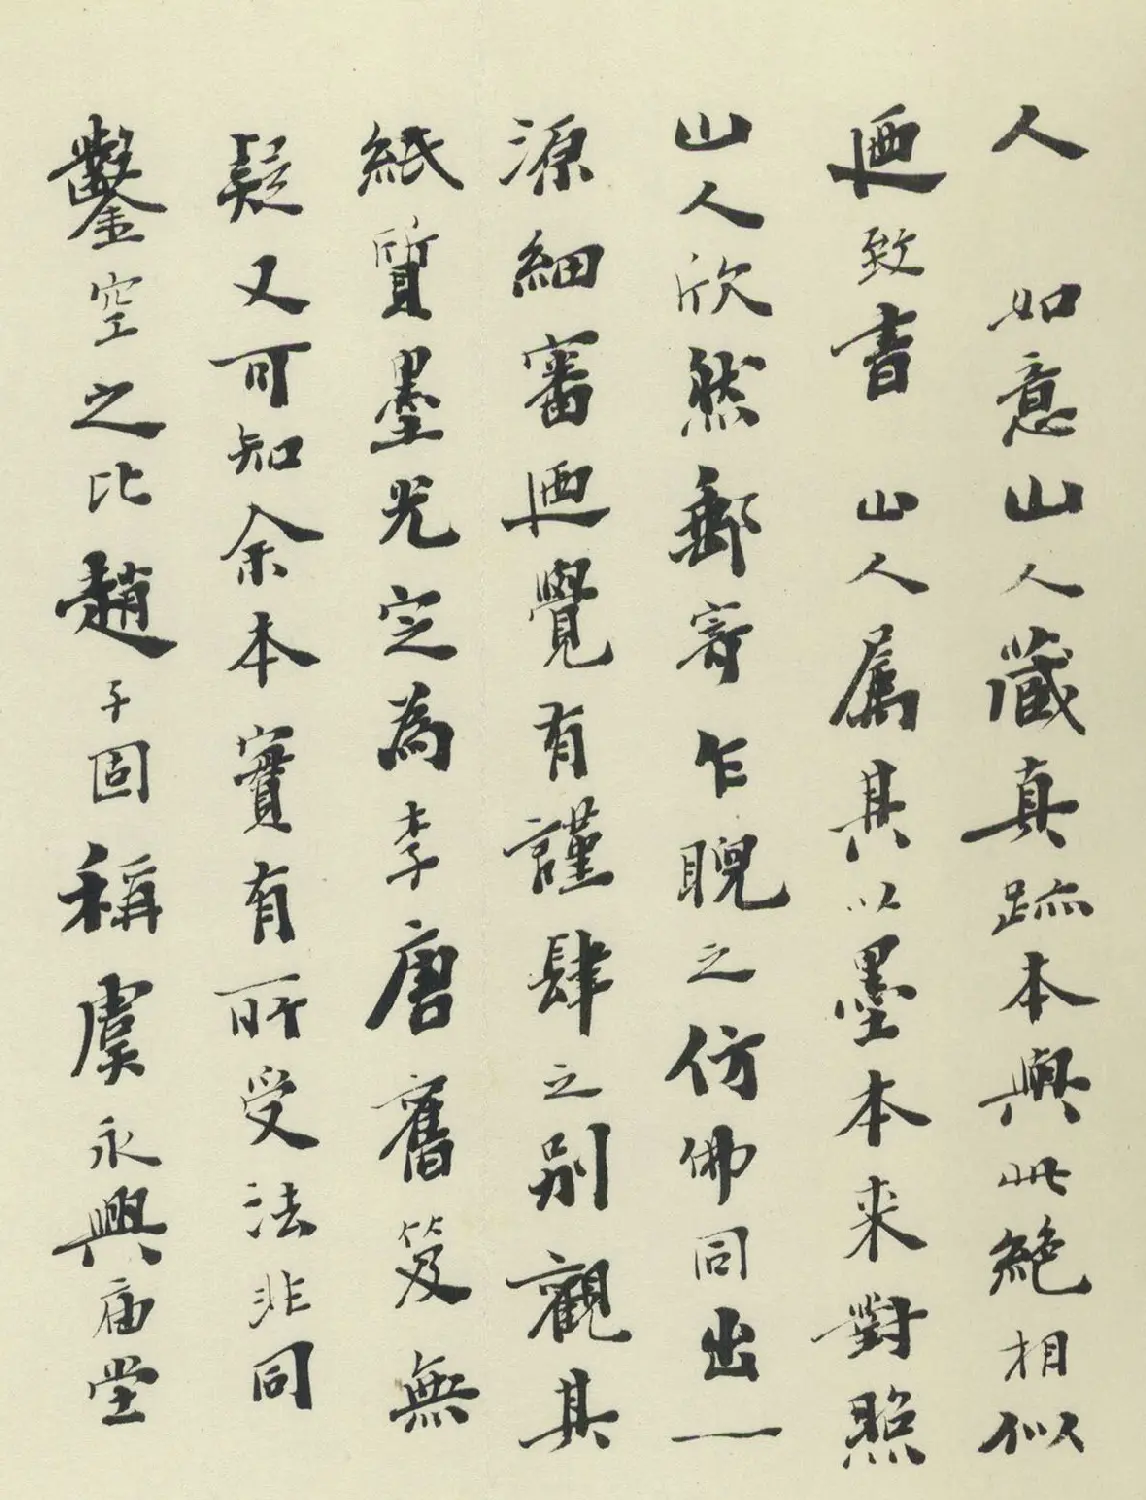 人 如意山人藏真跡本與此絕相似
迺致書 山人属其以墨本来對照
山人欣然郵寄乍睨之仿佛同出一
源細審迺覺有謹肆之別觀其
紙質墨光定為李唐舊笈無
疑又可知余本實有所受法非同
鑿空之比趙子固稱虞永興庙堂